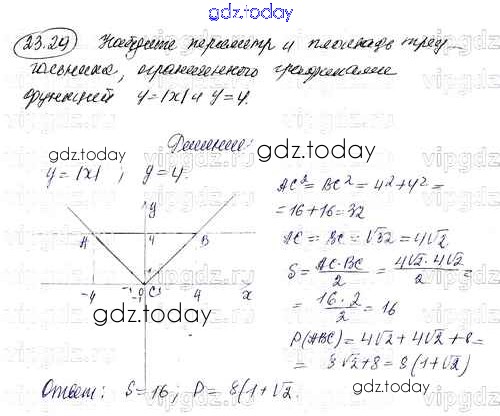 gdz.today
23.29 Найдите периметр и площадь треу-
гольника, ограниченного графиками
функций y=|x| и y=4.
Решение:
gdz.today
gdz.today
y=|x| ; y=4.
y
A 4 B
-4 C 4 x
gdz.today
AC²=BC²=4²+4²=
=16+16=32
AC=BC=√32=4√2
S=AC·BC/2=4√2·4√2/2=
=16·2/2=16
P(ABC)=4√2+4√2+8=
=8√2+8=8(1+√2)
gdz.today
Ответ: S=16; P=8(1+√2.
vipgdz